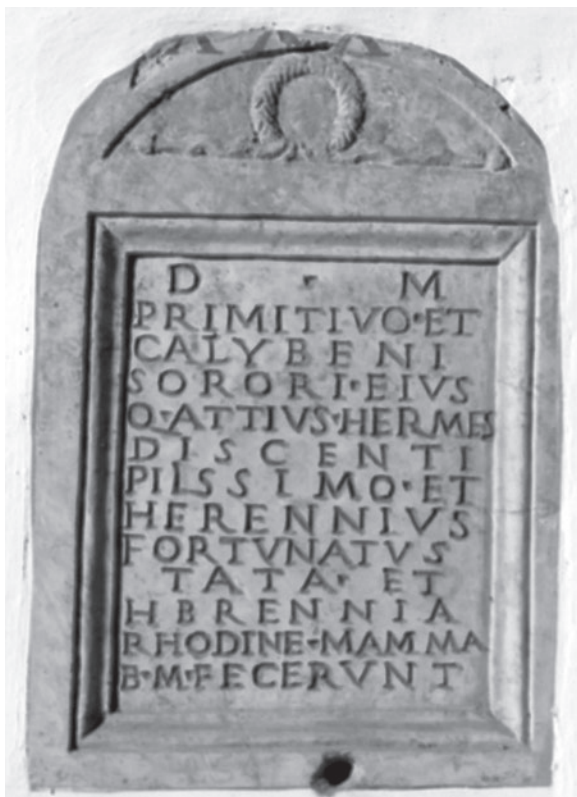 D · M
PRIMITIVO·ET
CALYBENI
SORORI·EIVS
Q·ATTIVS·HERMES
DISCENTI
PILSSIMO·ET
HERENNIVS
FORTVNATVS
TATA·ET
HBRENNIA
RHODINE·MAMMA
B·M·FECERVNT